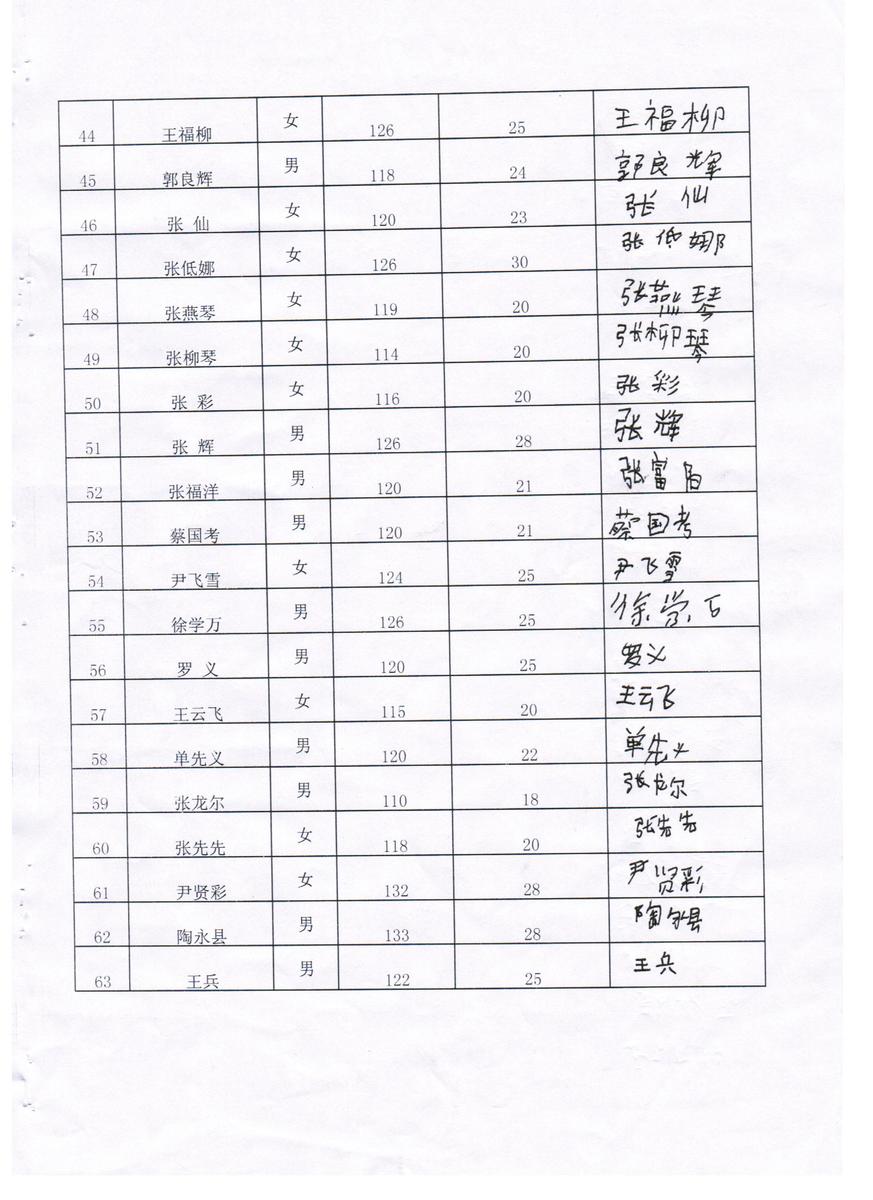 44 王福柳 女 126 25 王福柳
45 郭良辉 男 118 24 郭良辉
46 张 仙 女 120 23 张 仙
47 张低娜 女 126 30 张低娜
48 张燕琴 女 119 20 张燕琴
49 张柳琴 女 114 20 张柳琴
50 张 彩 女 116 20 张 彩
51 张 辉 男 126 28 张 辉
52 张福洋 男 120 21 张富
53 蔡国考 男 120 21 蔡国考
54 尹飞雪 女 124 25 尹飞雪
55 徐学万 男 126 25 徐学
56 罗 义 男 120 25 罗义
57 王云飞 女 115 20 王云飞
58 单先义 男 120 22 单先义
59 张龙尔 男 110 18 张龙尔
60 张先先 女 118 20 张先先
61 尹贤彩 女 132 28 尹贤彩
62 陶永县 男 133 28 陶永县
63 王兵 男 122 25 王兵